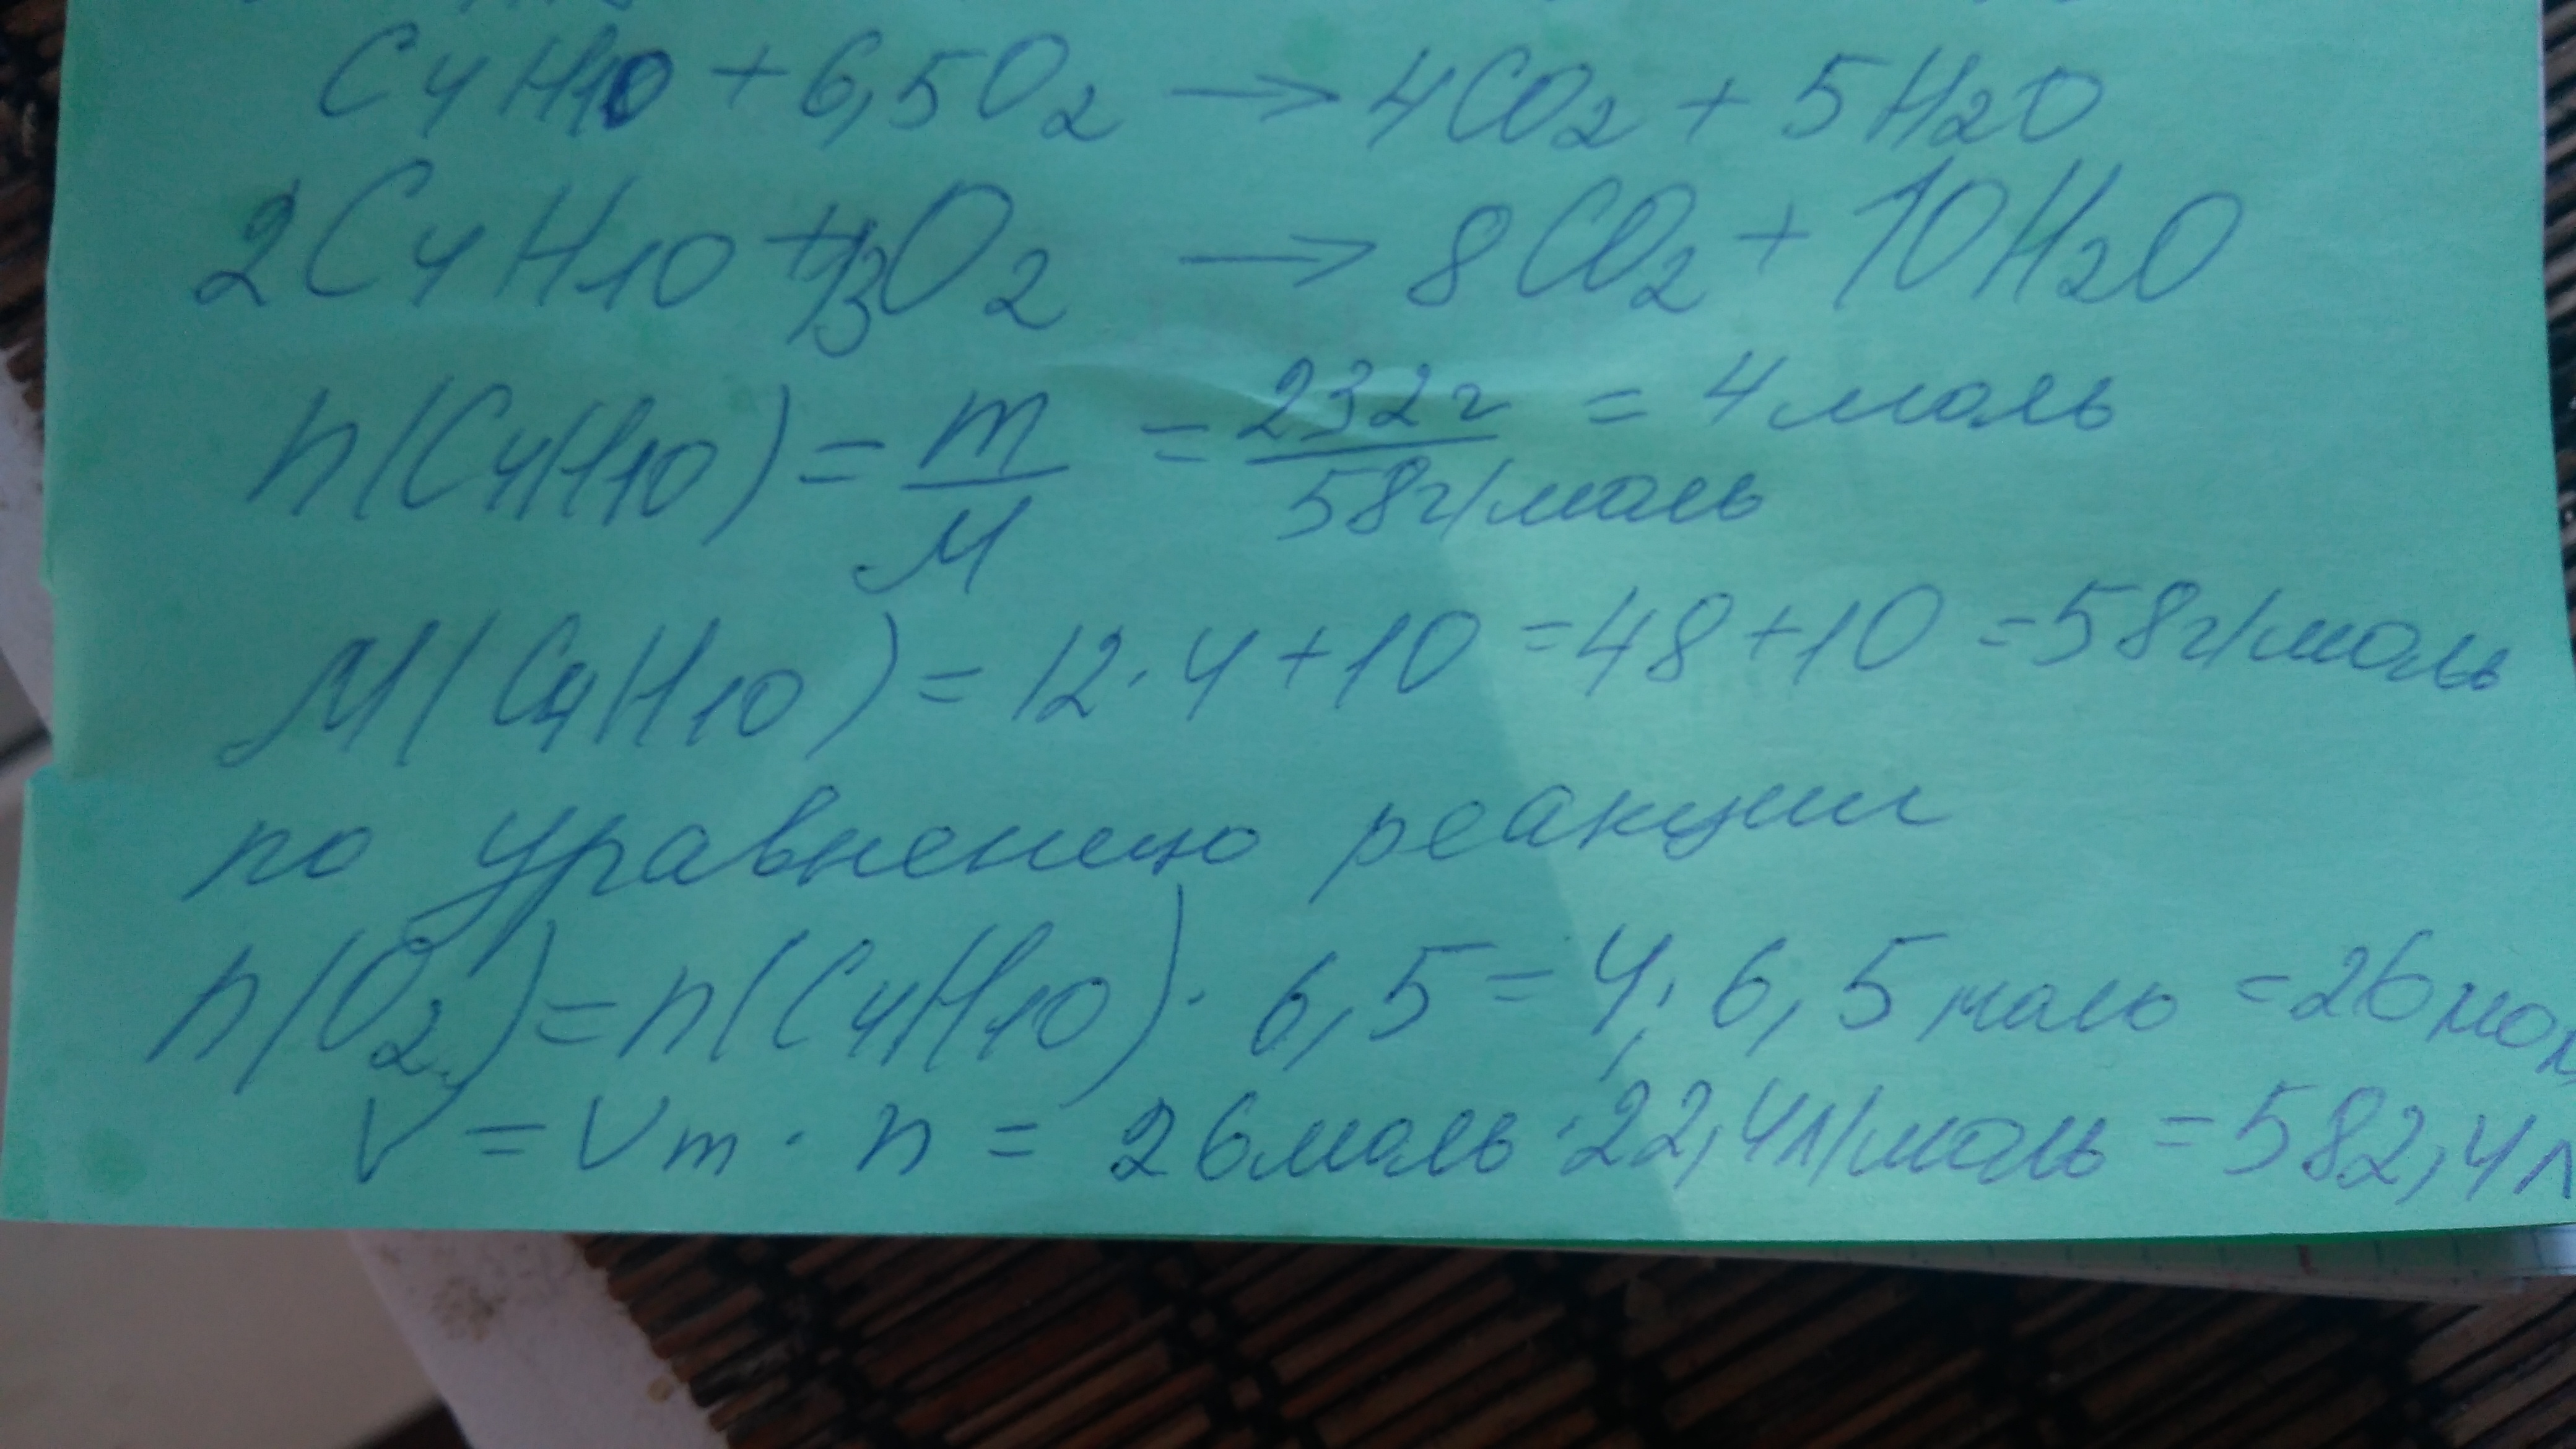 C4H10 + 6,5O2 → 4CO2 + 5H2O
2C4H10 + 13O2 → 8CO2 + 10H2O
n(C4H10) = m/M = 232г/58г/моль = 4 моль
M(C4H10) = 12·4+10 = 48+10 = 58г/моль
по уравнению реакции
n(O2) = n(C4H10)· 6,5 = 4· 6,5 моль = 26 мол
V = Vm · n = 26моль·22,4л/моль = 582,4л